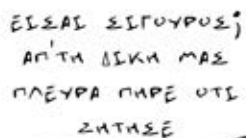 ΕΙΣΑΙ ΣΙΓΟΥΡΟΣ;
ΑΠ'ΤΗ ΔΙΚΗ ΜΑΣ
ΠΛΕΥΡΑ ΠΗΡΕ ΟΤΙ
ΖΗΤΗΣΕ